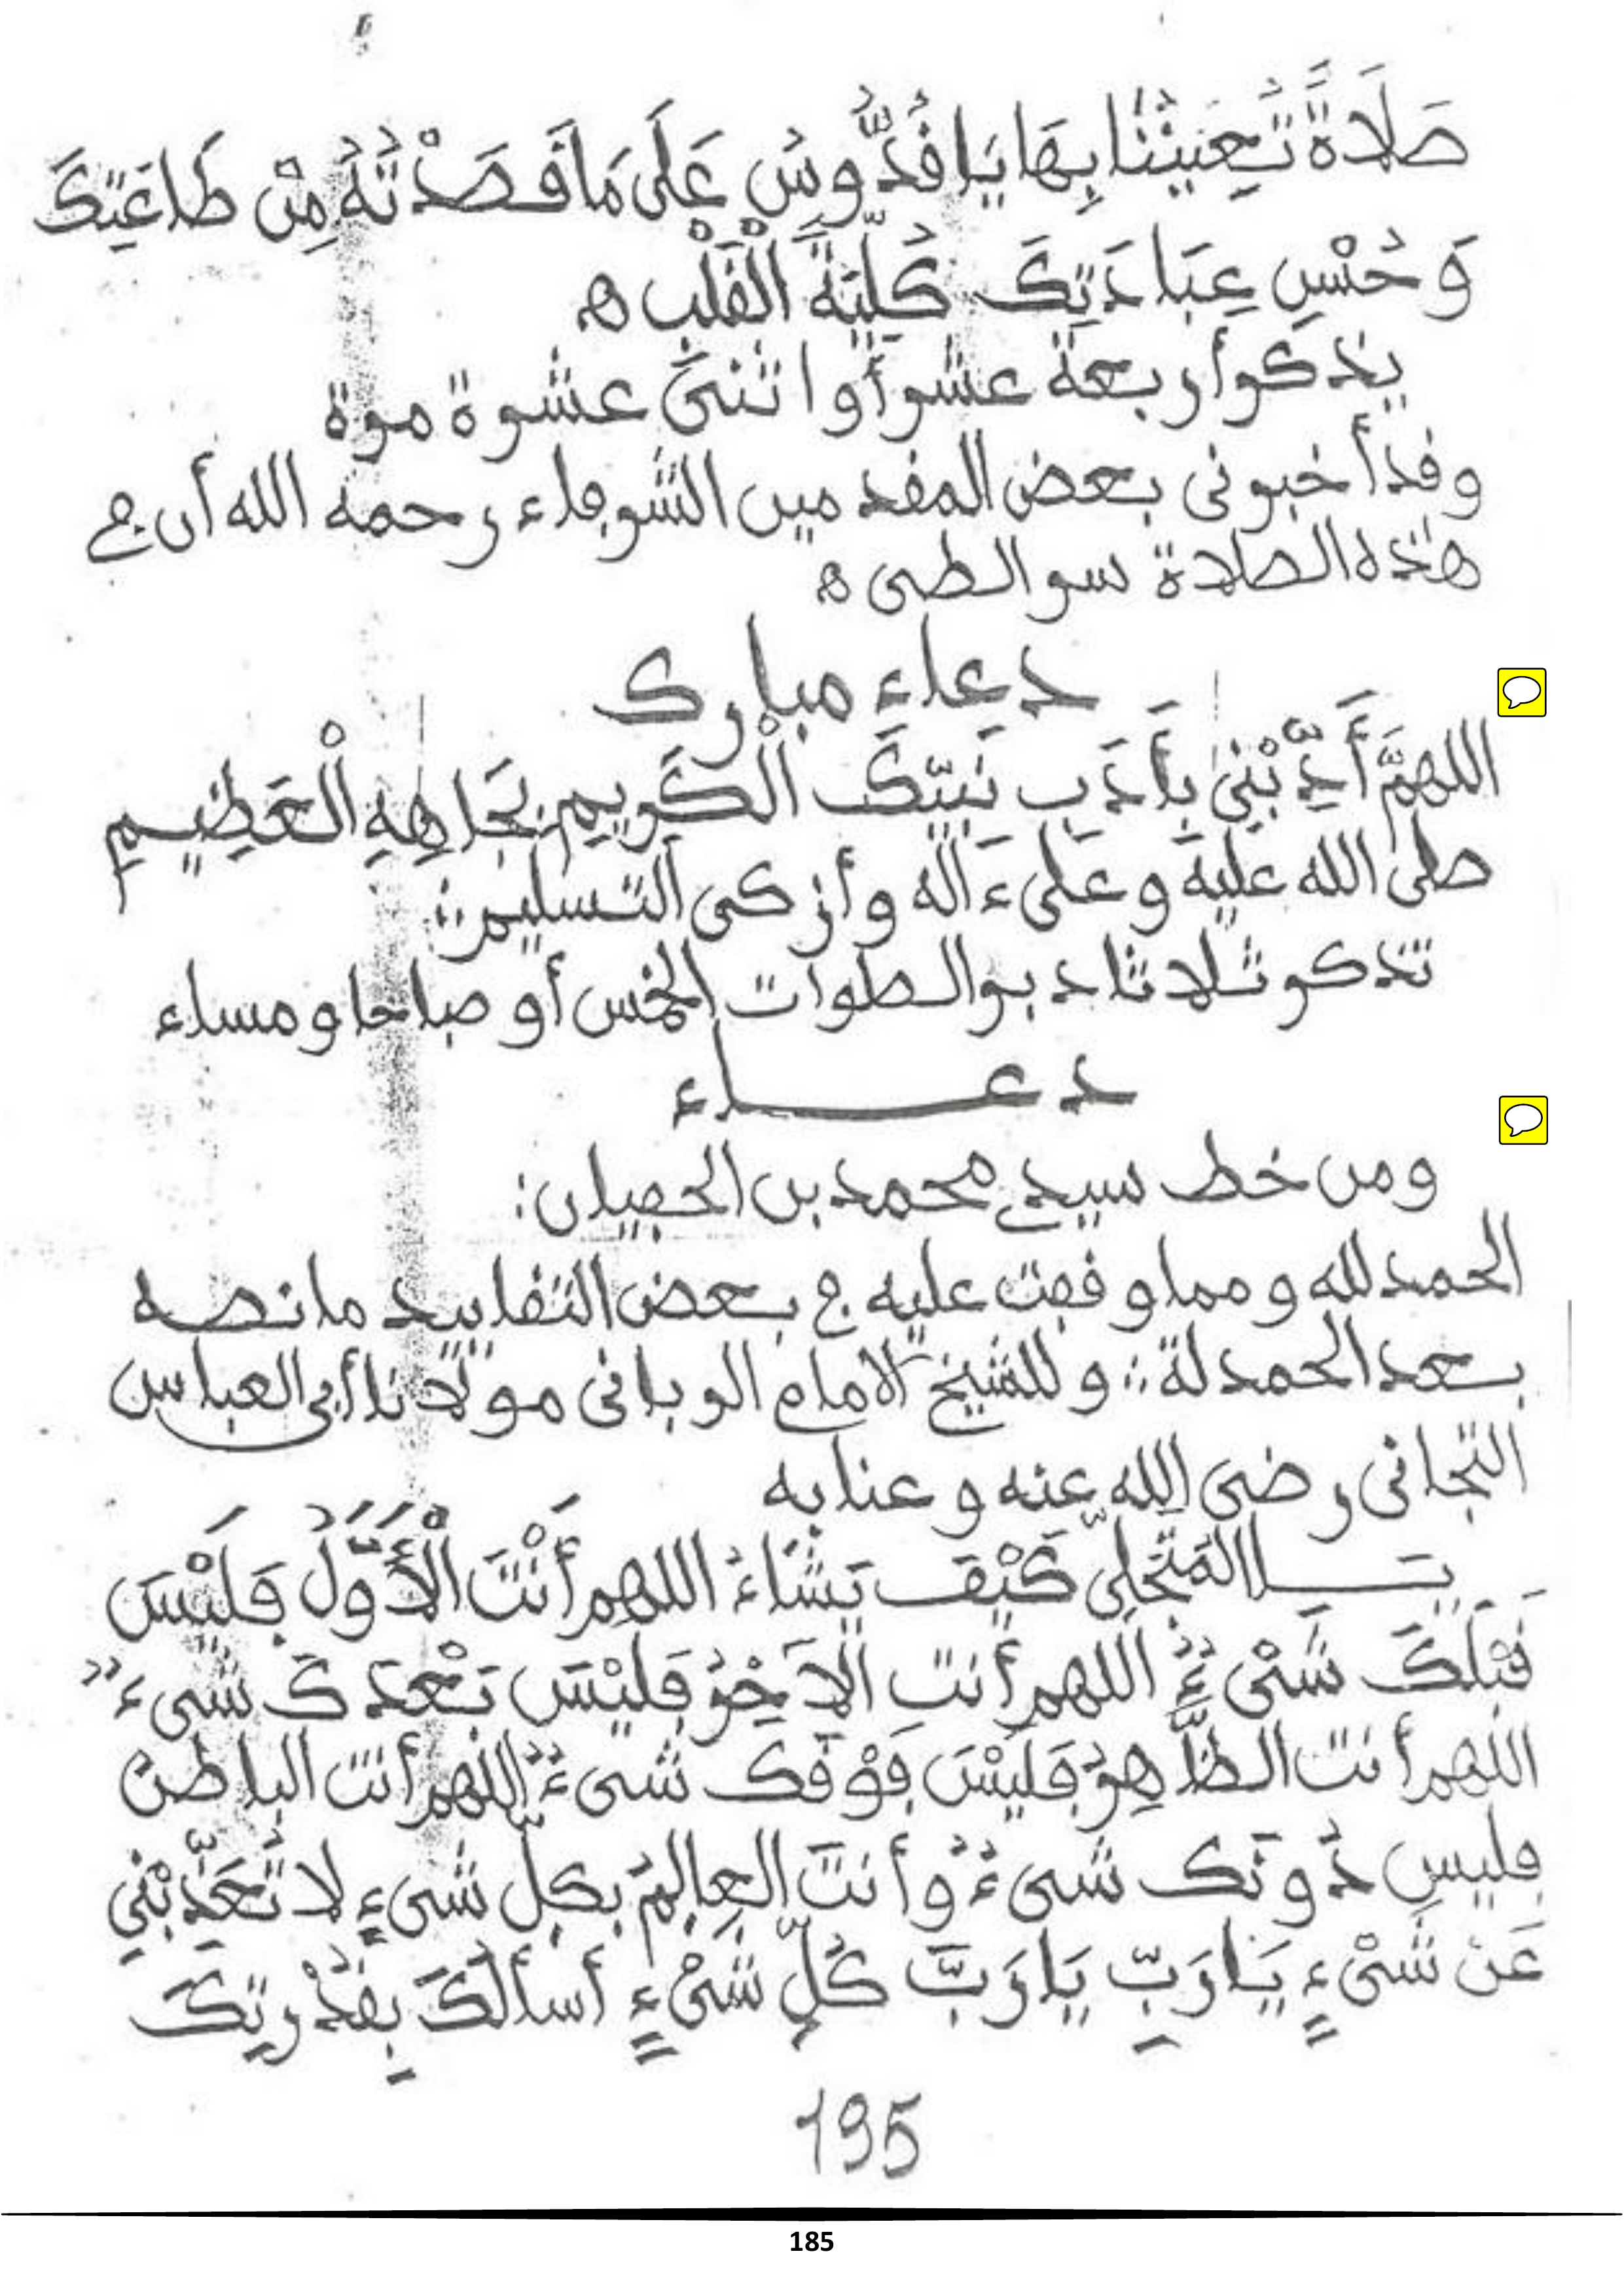 صَلَاةً تُعِينُنَا بِهَا يَا قُدُّوسُ عَلَى مَا قَصَدْتُهُ مِنْ طَاعَتِكَ
وَحُسْنِ عِبَادَتِكَ كُلِّيَّةَ الْقَلْبِ ه
يذكر أربعة عشر أو اثنتى عشرة مرة
وقد أخبرنى بعض المقدمين الشرفاء رحمه الله أن في
هذه الصلاة سر الطى ه
دعاء مبارك
اللهمَّ أَدِّبْنِي بِأَدَبِ نَبِيِّكَ الْكَرِيمِ بِجَاهِهِ الْعَظِيمِ
صلى الله عليه وعلى ءاله وأزكى التسليم
تذكر ثلاثا دبر الصلوات الخمس أو صباحا ومساء
دعاء
ومن خط سيدي محمد بن الحصيان:
الحمد لله ومما وقفت عليه في بعض التقاييد ما نصه
بعد الحمدلة وللشيخ الامام الربانى مولانا أبي العباس
التجانى رضى الله عنه وعنا به
يـا المُتَجَلِّي كَيْفَ يَشَاءُ اللهم أَنْتَ الْأَوَّلُ فَلَيْسَ
قَبْلَكَ شَىْءٌ اللهم أنت الآخِرُ فَلَيْسَ بَعْدَكَ شىءٌ
اللهم أنت الظَّاهِرُ فَلَيْسَ فَوْقَكَ شىءٌ اللهم أنت الباطنُ
فليس دُونَكَ شىءٌ وأنتَ العالِمُ بكلِّ شىءٍ لا تُعَذِّبْنِي
عَنْ شَىْءٍ يَا رَبِّ يَا رَبَّ كُلِّ شَىْءٍ أسألُكَ بِقُدْرتِكَ
195
185